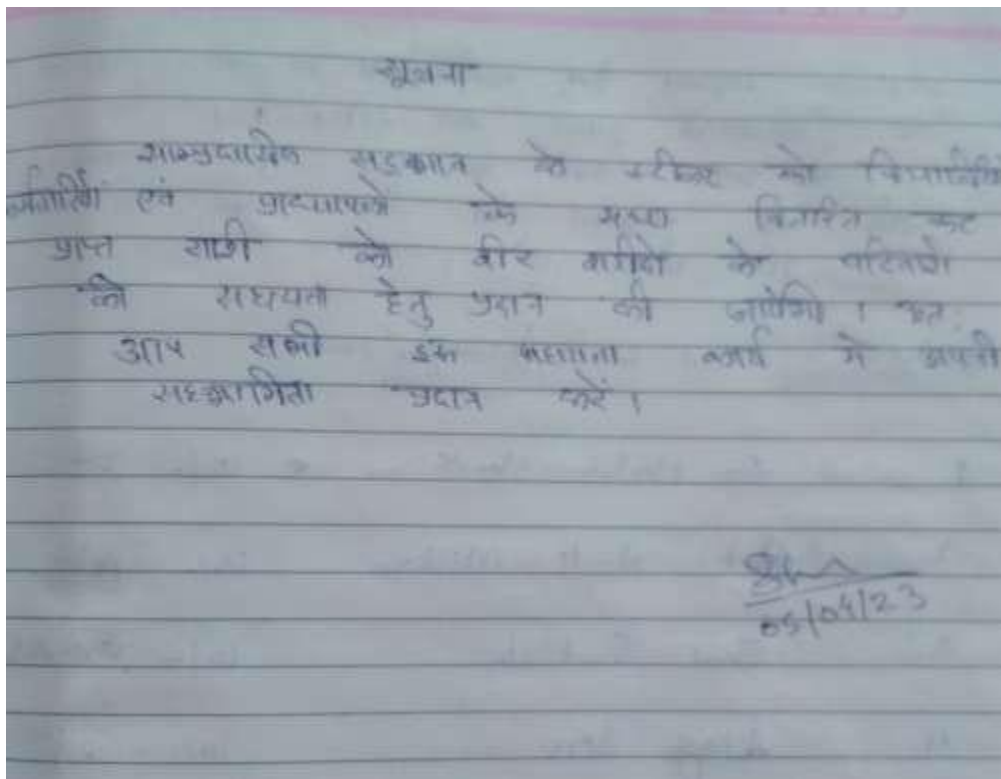 सूचना
साम्प्रदायिक सद्भाव के स्टीकर को विद्यार्थियों
एवं प्राध्यापको के मध्य वितरित कर
प्राप्त राशी को वीर शहीदो के परिवारो
की सहायता हेतु प्रदान की जायेगी । अतः
आप सभी इस सहायता कार्य मे अपनी
सहभागिता प्रदान करें ।
05/04/23